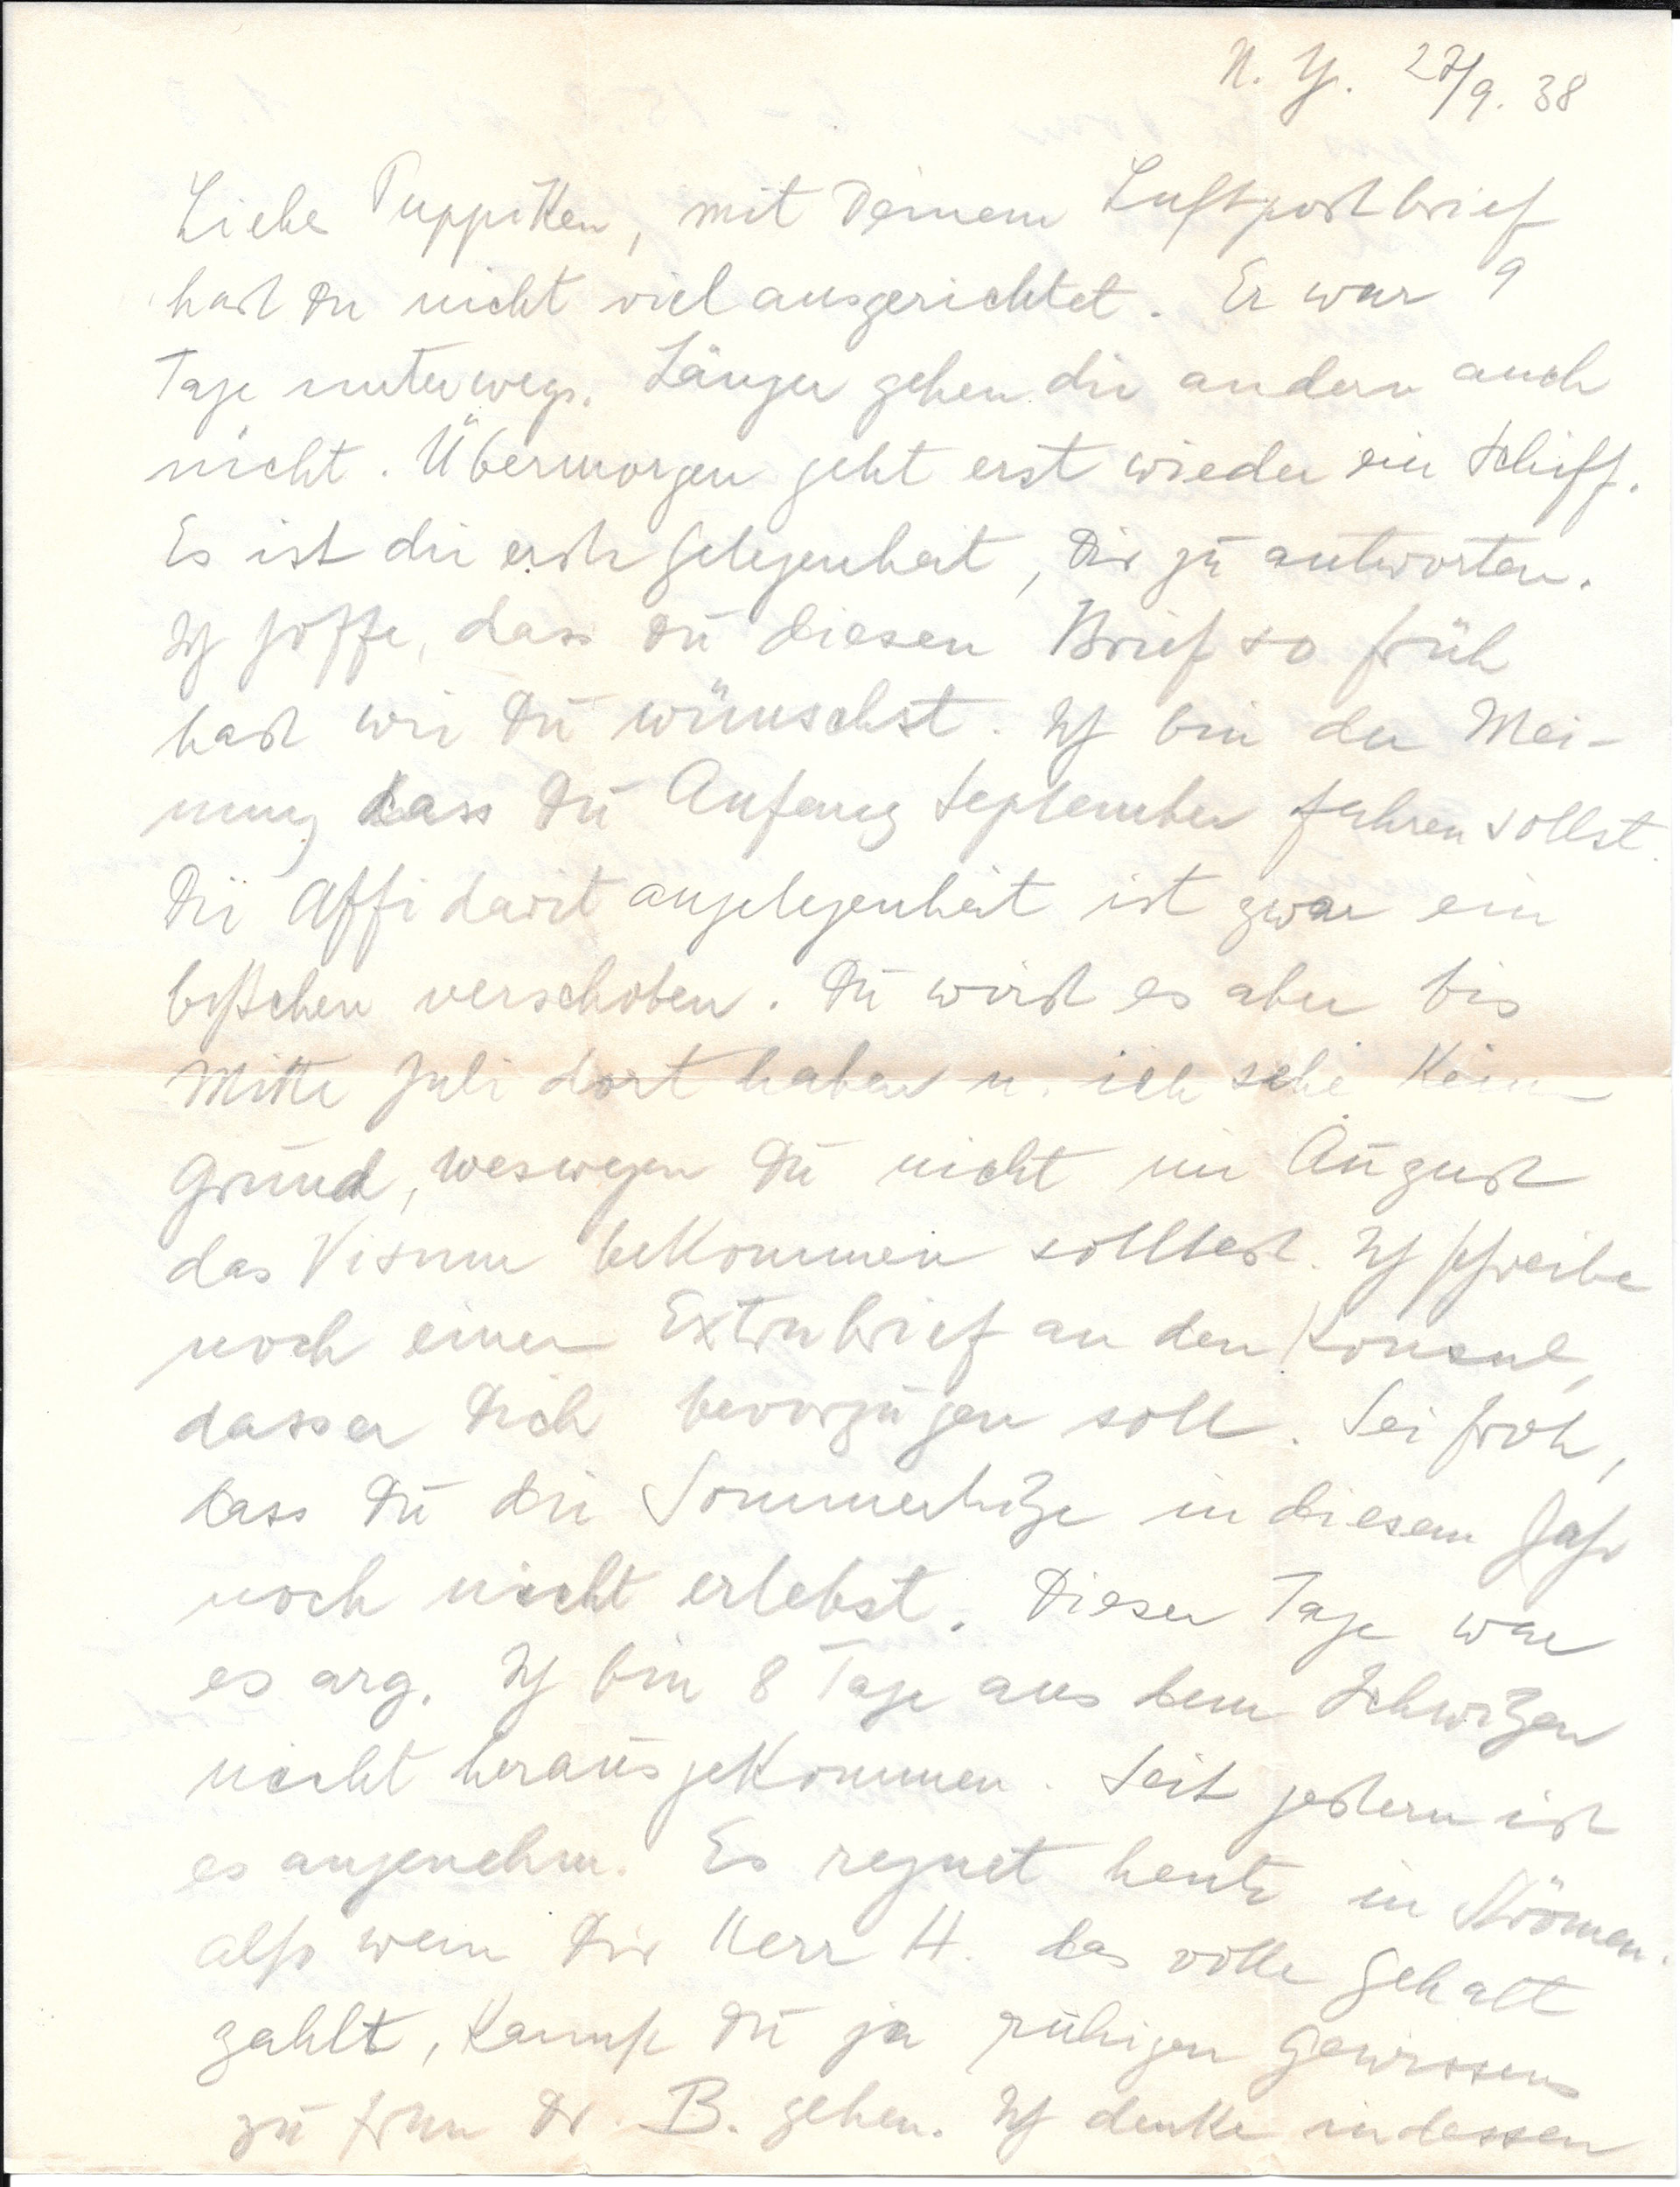 N. Y. 27/9. 38
Liebe Puppiken, mit Deinem Luftpostbrief
hast Du nicht viel ausgerichtet. Er war 9
Tage unterwegs. Länger gehen die andern auch
nicht. Übermorgen geht erst wieder ein Schiff.
Es ist die erste Gelegenheit, Dir zu antworten.
Ich hoffe, dass Du diesen Brief so früh
hast wie Du wünschst. Ich bin der Mei-
nung dass Du Anfang September fahren sollst.
Die Affidavit angelegenheit ist zwar ein
bißchen verschoben. Du wirst es aber bis
Mitte Juli dort haben u. ich sehe kein
Grund, weswegen Du nicht im August
das Visum bekommen solltest. Ich schreibe
noch einen Extrabrief an den Konsul,
dass er Dich bevorzugen soll. Sei froh,
dass Du die Sommerhitze in diesem Jahr
noch nicht erlebst. Dieser Tage war
es arg. Ich bin 8 Tage aus dem Schwitzen
nicht herausgekommen. Seit gestern ist
es angenehm. Es regnet heute in Strömen.
also wenn Dir Herr H. das volle Gehalt
zahlt, kannst Du ja ruhigen Gewissens
zu Frau Dr. B. gehen. Ich denke indessen